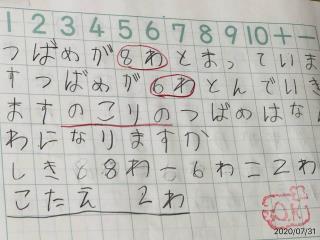 1 2 3 4 5 6 7 8 9 10 + −
つばめが8わとまっていま
すつばめが6わとんでいき
ますのこりのつばめはなん
わになりますか
しき 8 8わ−6わ=2わ
こたえ 2わ
OK
2020/07/31